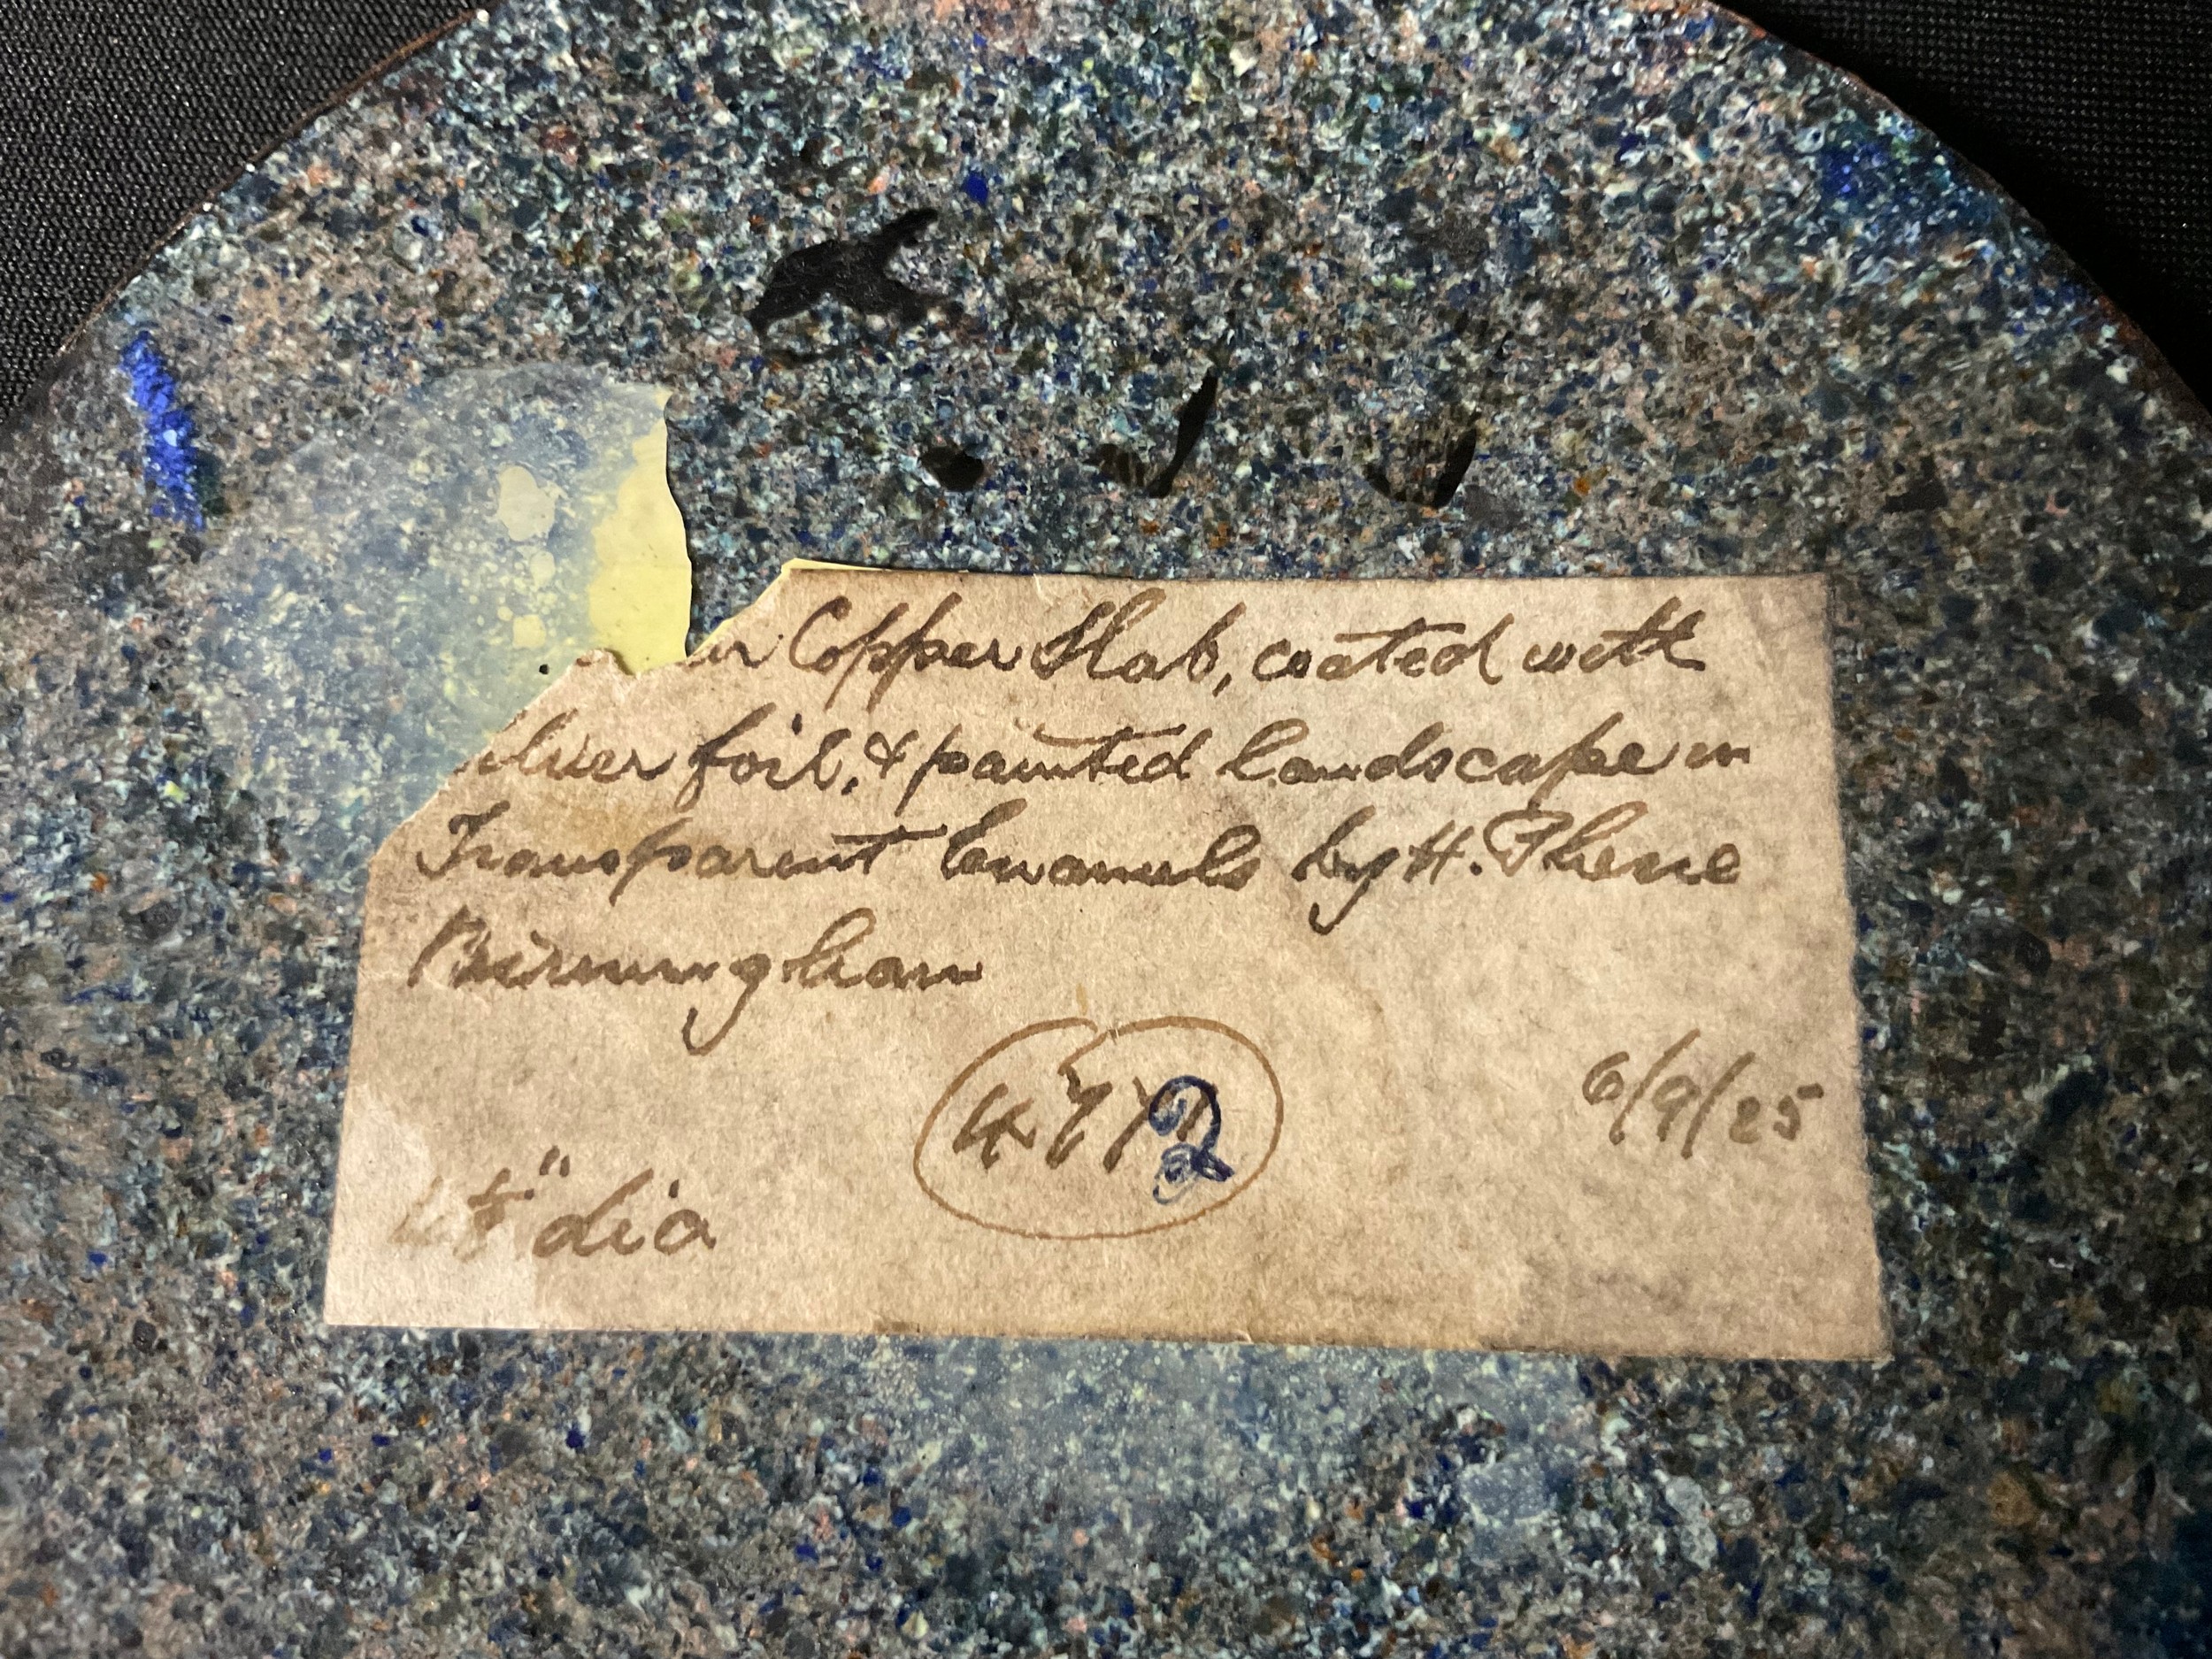 Copper Slab, coated with
foil, & painted landscape in
Transparent Enamels by H. Phene
Birmingham
6/9/25
" dia